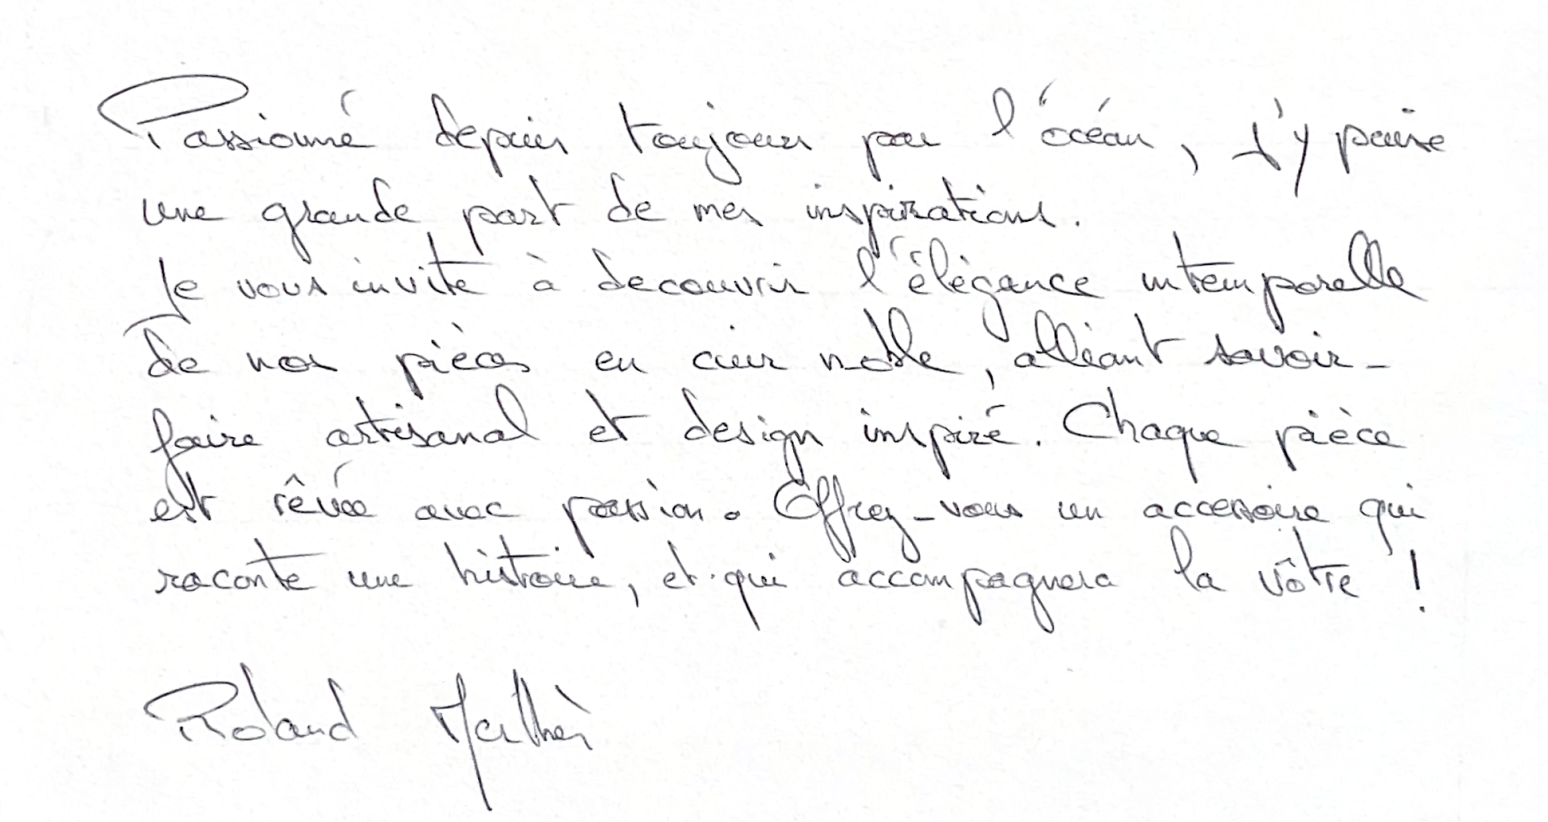 Passionné depuis toujours par l'océan, j'y puise
une grande part de mes inspirations.
Je vous invite à decouvrir l'élégance intemporelle
de nos pièces en cuir noble, alliant savoir-
faire artisanal et design inspiré. Chaque pièce
est rêvée avec passion. Offrez-vous un accessoire qui
raconte une histoire, et qui accompagnera la vôtre !
Roland